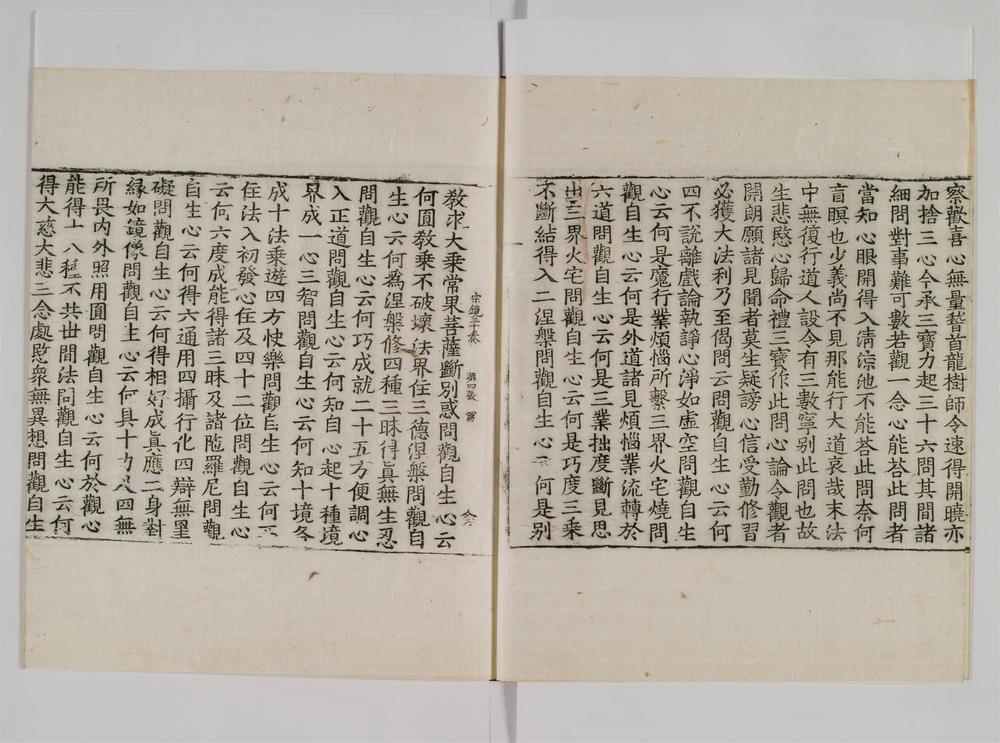 察歡喜心無量稽首龍樹師令速得開曉亦
加捨三心今承三寶力起三十六問其問諸
細問對事難可數若觀一念心能荅此問者
當知心眼開得入淸涼池不能荅此問柰何
盲瞑也少義尚不見那能行大道哀哉末法
中無復行道人設令有三數寧別此問也故
生悲愍心歸命禮三寶作此問心論令觀者
開朗願諸見聞者莫生疑謗心信受勤修習
必獲大法利乃至偈問云問觀自生心云何
四不說離戲論執諍心淨如虛空問觀自生
心云何是魔行業煩惱所繫三界火宅燒問
觀自生心云何是外道諸見煩惱業流轉於
六道問觀自生心云何是三業拙度斷見思
出三界火宅問觀自生心云何是巧度三乘
不斷結得入二涅槃問觀自生心云何是別
宗鏡三十 第四張 富
敎求大乘常果菩薩斷別惑問觀自生心云
何圓敎乘不破壞法界住三德涅槃問觀自
生心云何爲涅槃修四種三昧得眞無生忍
問觀自生心云何巧成就二十五方便調心
入正道問觀自生心云何知自心起十種境
界成一心三智問觀自生心云何知十境各
成十法乘遊四方快樂問觀自生心云何
住法入初發心住及四十二位問觀自生心
云何六度成能得諸三昧及諸陁羅尼問觀
自生心云何得六通用四攝行化四辯無罣
礙問觀自生心云何得相好成眞應二身對
緣如鏡像問觀自生心云何具十力及四無
所畏內外照用圓問觀自生心云何於觀心
能得十八種不共世間法問觀自生心云何
得大慈大悲三念處愍衆無異想問觀自生